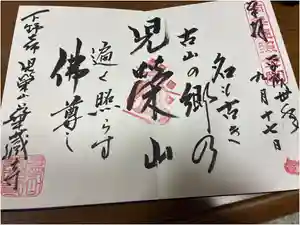 奉拝
平成廿九年
九月十七日
名も古き
古山の郷の
児榮山
遍く照らす
佛尊し
下野市 児栄山華蔵寺